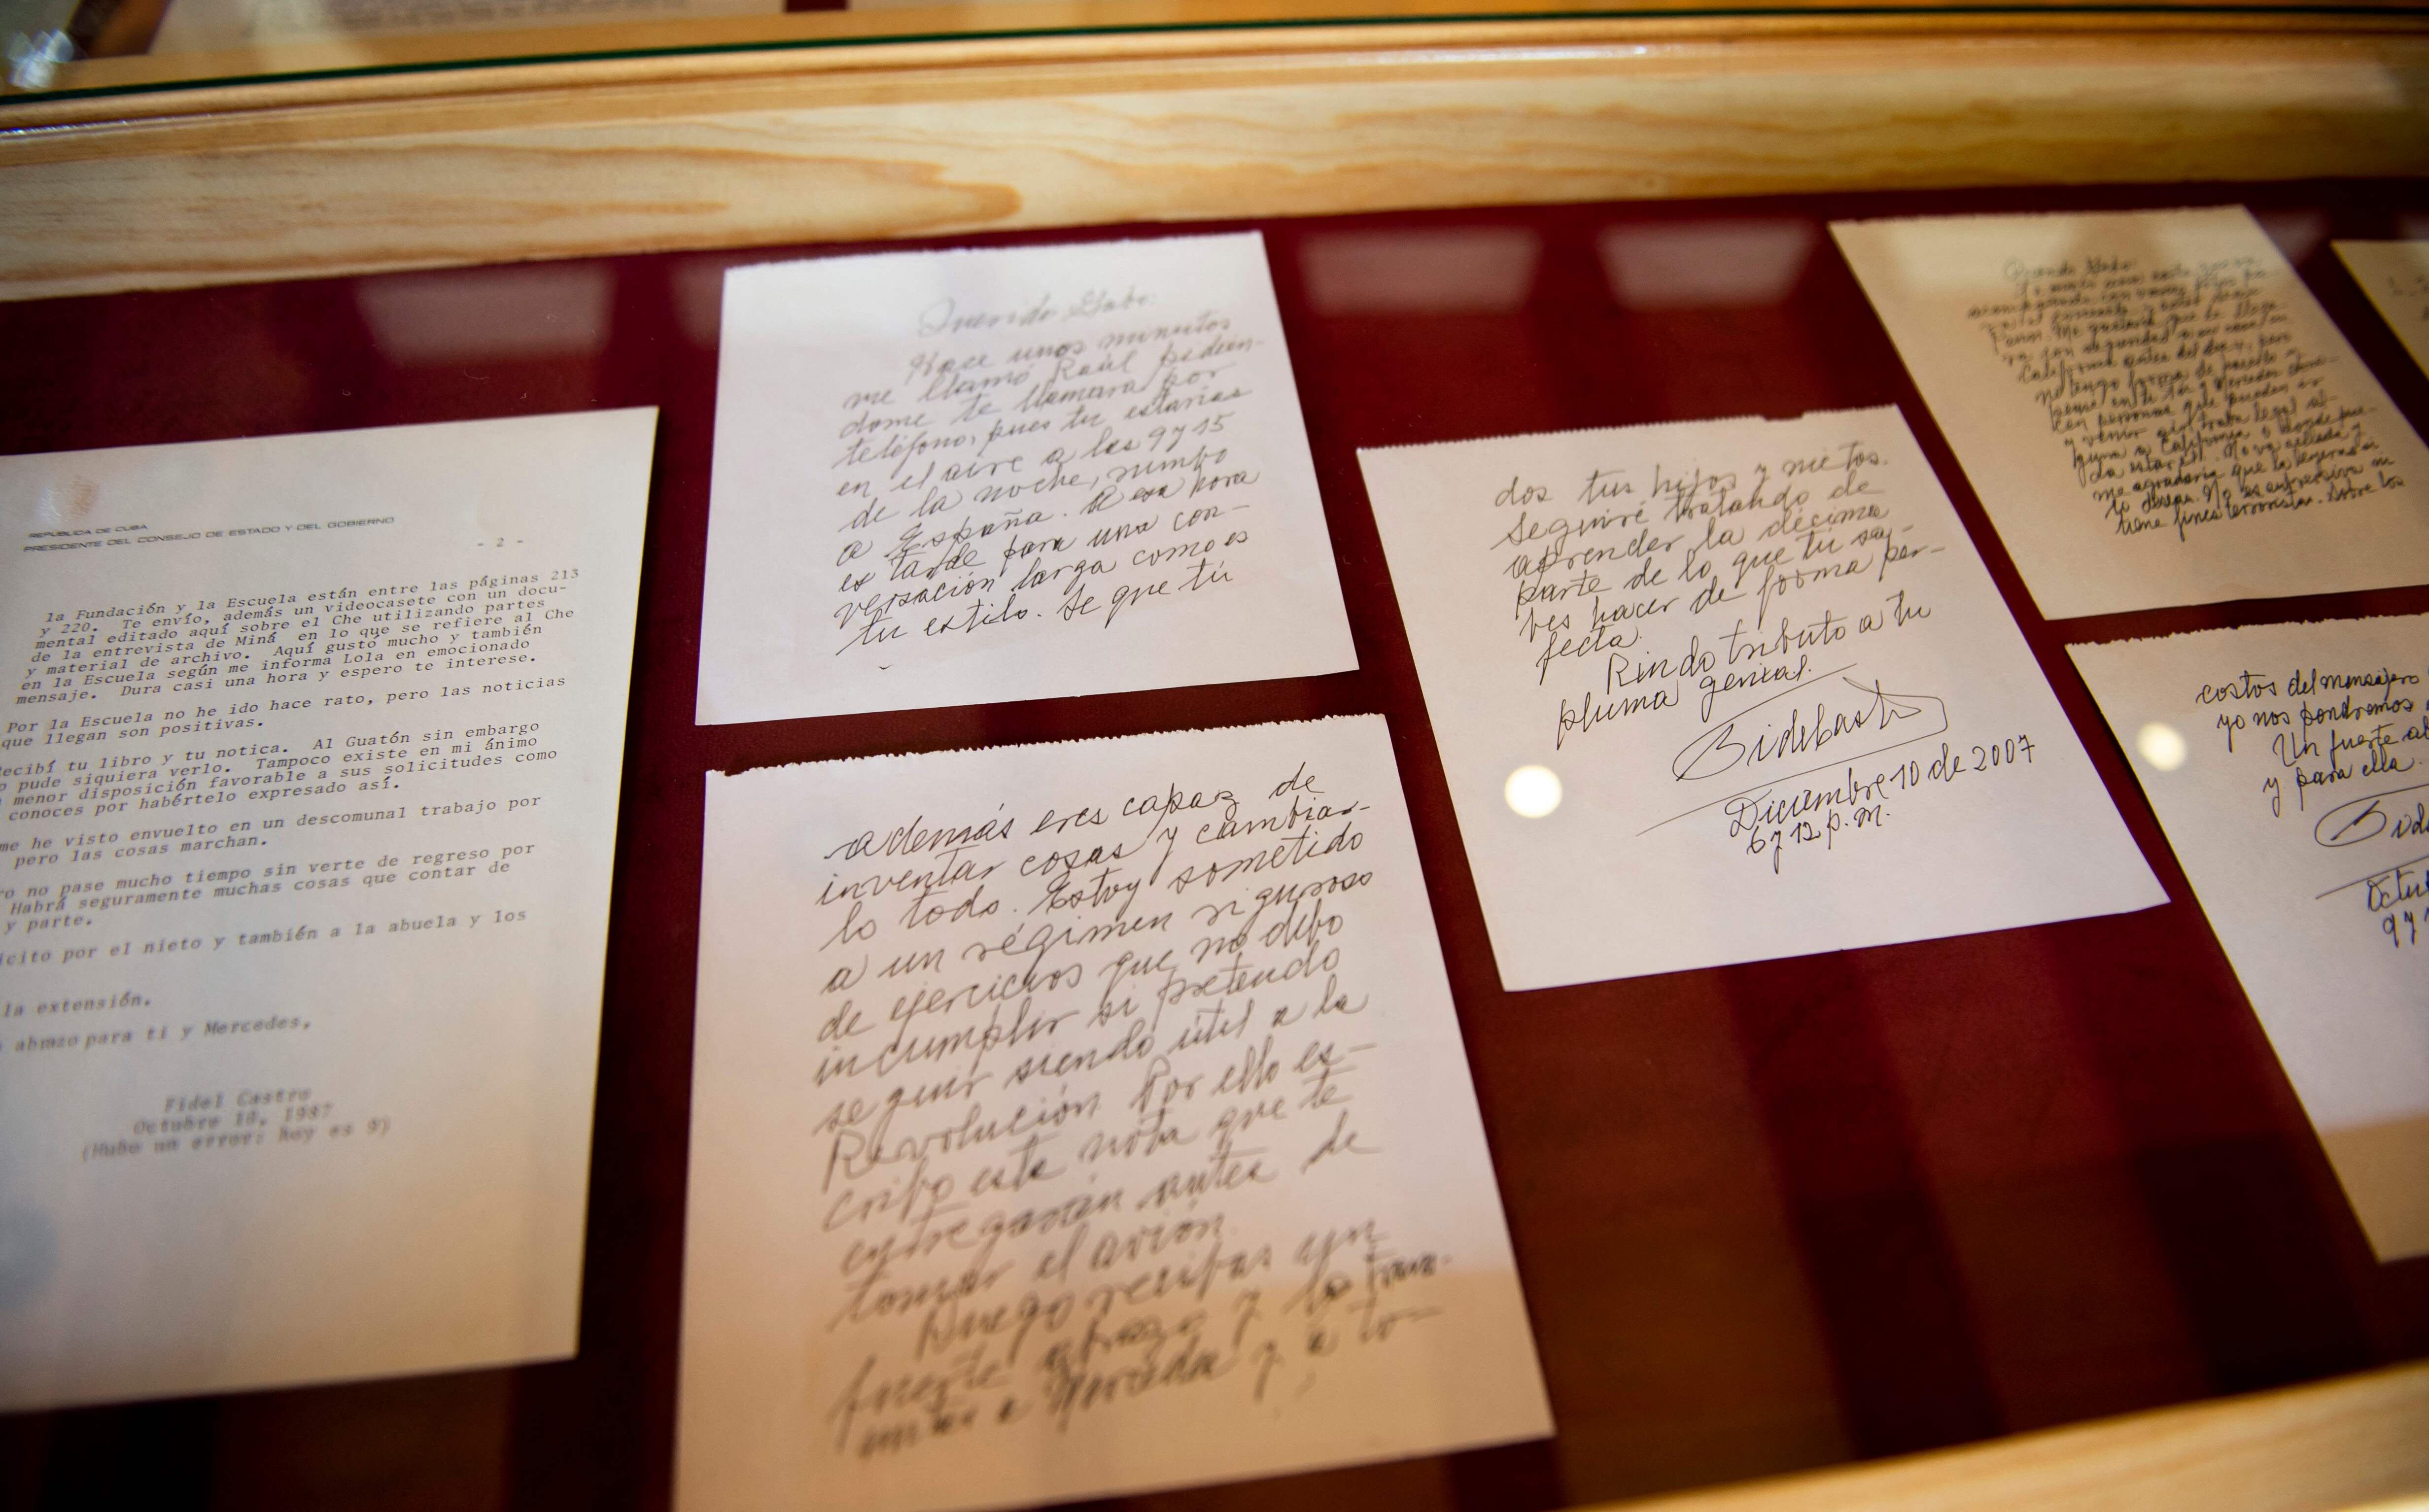 REPUBLICA DE CUBA
PRESIDENTE DEL CONSEJO DE ESTADO Y DEL GOBIERNO
- 2 -
la Fundación y la Escuela están entre las páginas 213
y 220. Te envío, además un videocasete con un docu-
mental editado aquí sobre el Che utilizando partes
de la entrevista de Miná en lo que se refiere al Che
y material de archivo. Aquí gustó mucho y también
en la Escuela según me informa Lola en emocionado
mensaje. Dura casi una hora y espero te interese.
Por la Escuela no he ido hace rato, pero las noticias
que llegan son positivas.
ecibí tu libro y tu notica. Al Guatón sin embargo
o pude siquiera verlo. Tampoco existe en mi ánimo
menor disposición favorable a sus solicitudes como
conoces por habértelo expresado así.
me he visto envuelto en un descomunal trabajo por
pero las cosas marchan.
ro no pase mucho tiempo sin verte de regreso por
Habrá seguramente muchas cosas que contar de
y parte.
icito por el nieto y también a la abuela y los
la extensión.
abrazo para ti y Mercedes,
Fidel Castro
Octubre 10, 1987
(Hubo un error: hoy es 9)
Querido Gabo:
Hace unos minutos
me llamó Raúl pidién-
dome te llamara por
teléfono, pues tu estarías
en el aire a las 9 y 15
de la noche, rumbo
a España. A esa hora
es tarde para una con-
versación larga como es
tu estilo. Se que tú
además eres capaz de
inventar cosas y cambiar-
lo todo. Estoy sometido
a un régimen riguroso
de ejercicios que no debo
incumplir si pretendo
seguir siendo útil a la
Revolución. Por ello es-
cribo esta nota que te
entregarán antes de
tomar el avión.
Ruego recibas un
fuerte abrazo y lo trans-
mitas a Mercedes y a to-
dos tus hijos y nietos.
Seguiré tratando de
aprender la décima
parte de lo que tú sa-
bes hacer de forma per-
fecta.
Rindo tributo a tu
pluma genial.
Diciembre 10 de 2007
6 y 12 p.m.
Querido Gabo:
California antes del día
no tengo forma de hacerlo
que tú y Mercedes
con personas que puedan ir
y venir sin traba legal al-
guna a California o donde
me agradaría que la leyeras si
lo deseas. No es subversiva ni
tiene fines terroristas. Sobre los
costos del mensajero
yo nos pondremos
Un fuerte
y para ella.